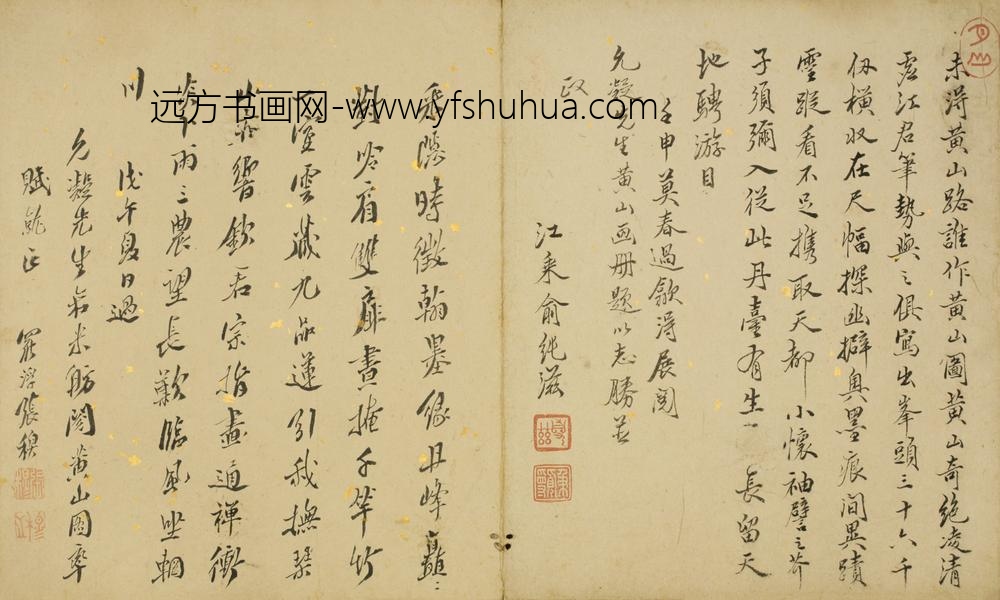 未淂黄山路誰作黄山圖黄山奇絶凌清
虛江君筆勢與之俱寫出峯頭三十六千
仭横收在尺幅探幽擗奥墨痕间異蹟
靈蹤看不足携取天都小懷袖譬之芥
子須彌入從此丹臺有生一長留天
地騁游目
壬申莫春過歙淂展閲
允凝先生黄山画册题以志勝並
政
江乘俞纯滋
時徵翰墨缘丹峰矗ミ
雙扉晝掩千竿竹
雲藏九品蓮引我撫琴
響欽君宗指畫通禅衝
雨三農望長歎臨風坐輞
川
戊午夏日過
允凝先生米舫閲黄山圖率
賦 正
羅浮張穆
远方书画网-www.yfshuhua.com